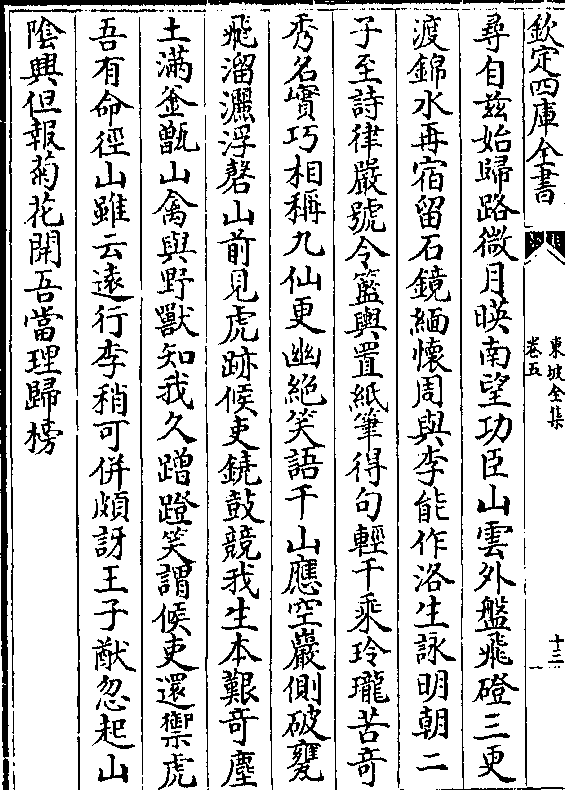 欽定四庫全書
東坡全集
卷五
十三
尋自兹始歸路微月暎南望功臣山雲外盤飛磴三更
渡錦水再宿留石鏡緬懷周與李能作洛生詠明朝二
子至詩律嚴號令籃輿置紙筆得句輕千乘玲瓏苦奇
秀名實巧相稱九仙更幽絶笑語千山應空巖側破甕
飛溜灑浮磬山前見虎跡候吏鐃鼓競我生本艱奇塵
土滿釜甑山禽與野獸知我久蹭蹬笑謂候吏還禦虎
吾有命徑山雖云遠行李稍可併頗訝王子猷忽起山
隂興但報菊花開吾當理歸榜